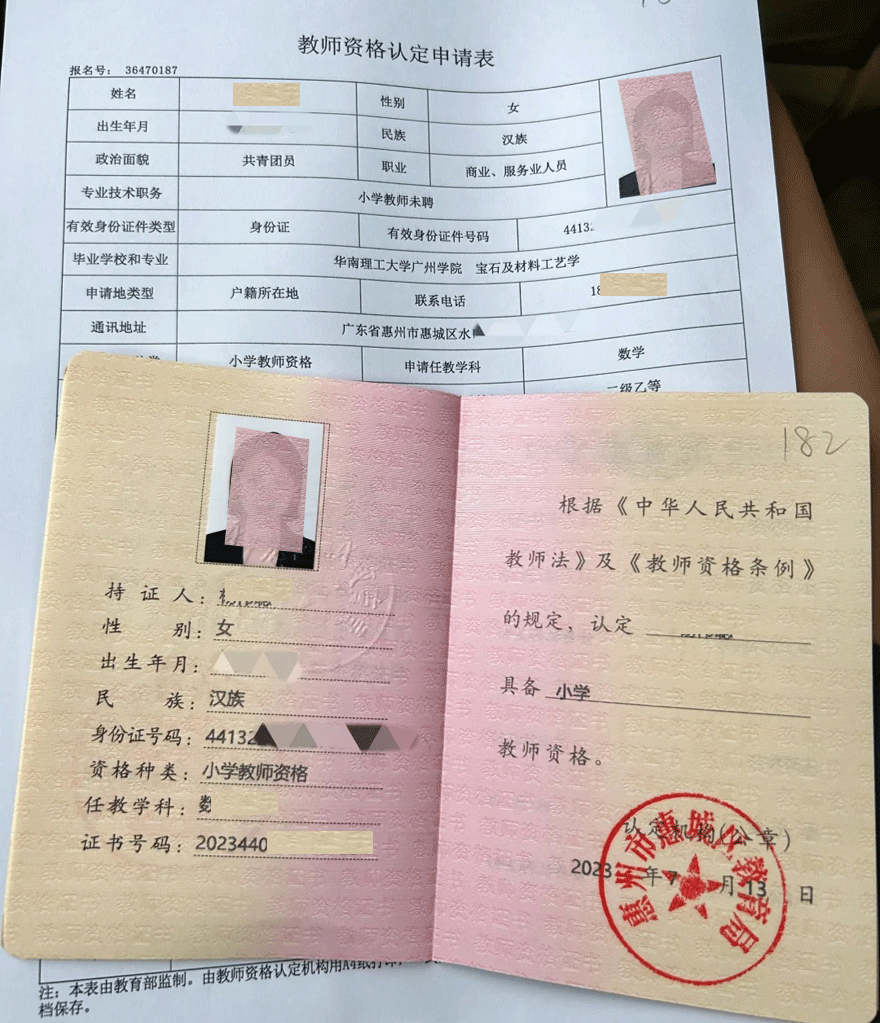 教师资格认定申请表
报名号： 36470187
姓名 性别 女
出生年月 民族 汉族
政治面貌 共青团员 职业 商业、服务业人员
专业技术职务 小学教师未聘
有效身份证件类型 身份证 有效身份证件号码 44132
毕业学校和专业 华南理工大学广州学院 宝石及材料工艺学
申请地类型 户籍所在地 联系电话 18
通讯地址 广东省惠州市惠城区水
小学教师资格 申请任教学科 数学
二级乙等
持证人：
性别：女
出生年月：
民族：汉族
身份证号码：44132
资格种类：小学教师资格
任教学科：数
证书号码：2023440
182
根据《中华人民共和国
教师法》及《教师资格条例》
的规定，认定
具备 小学
教师资格。
认定机构(公章)
2023 年 7 月 13 日
惠州市惠城区教育局
注：本表由教育部监制。由教师资格认定机构用A4纸打印，
档保存。